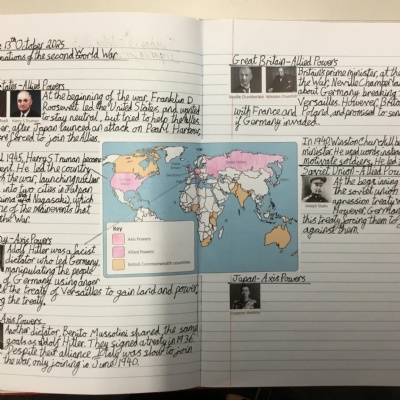 13th October 2015
nations of the second World War
States-Allied Powers
At the beginning of the war, Franklin D.
Roosevelt led the United States, and wanted
to stay neutral, but tried to help the allies.
after Japan launched an attack on Pearl Harbour,
forced to join the Allies.
1945, Harry S Truman became
He led the country
the war, launching nuclear
into two cities in Japan
and Nagasaki), which
one of the movements that
the war.
Axis Powers
Adolf Hitler was a facist
dictator who led Germany,
manipulating the people
of Germany using anger
the treaty of Versailles to gain land and power,
the treaty.
Axis Powers
Another dictator, Benito Mussolini shared the same
goals as Adolf Hitler. They signed a treaty in 1936.
Despite their alliance, Italy was slow to join
the war, only joining in June 1940.
Key
Axis Powers
Allied Powers
British Commonwealth countries
Great Britain-Allied Powers
Britain's prime minister, at the
the War, Neville Chamberlain
about Germany breaking
Versailles. However, Britain
with France and Poland, and promised to
if Germany invaded.
Neville Chamberlain
Winston Churchill
In 1940 Winston Churchill
minister. He used words
motivate soldiers. He led
Soviet Union-Allied
At the beginning
the soviet union
agression treaty
However, Germany
this treaty, forcing them to
against them.
Joseph Stalin
Japan-Axis Powers